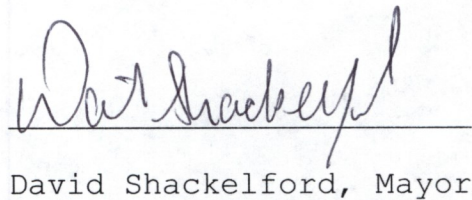 David Shackelford
David Shackelford, Mayor